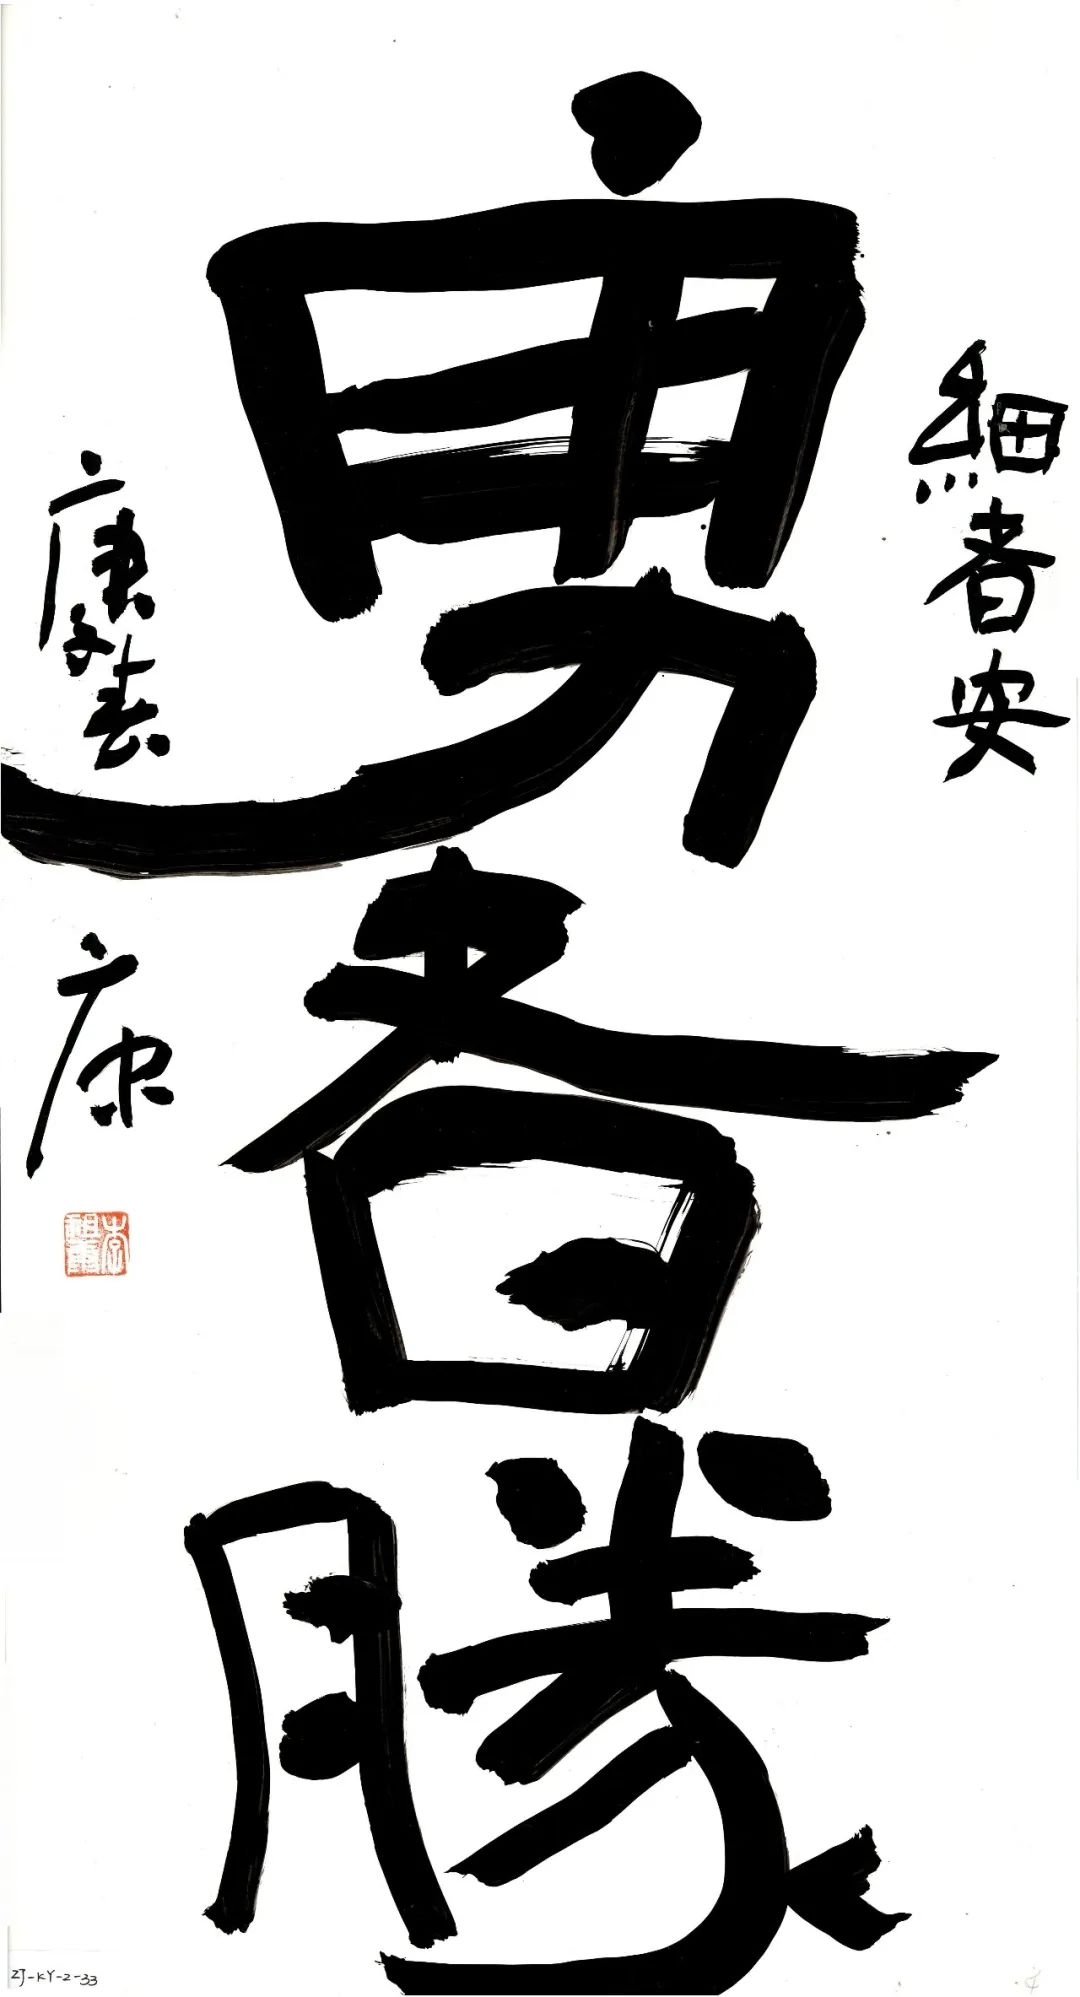 細者安
勇者勝
庚子春
康
ZJ-KY-2-33